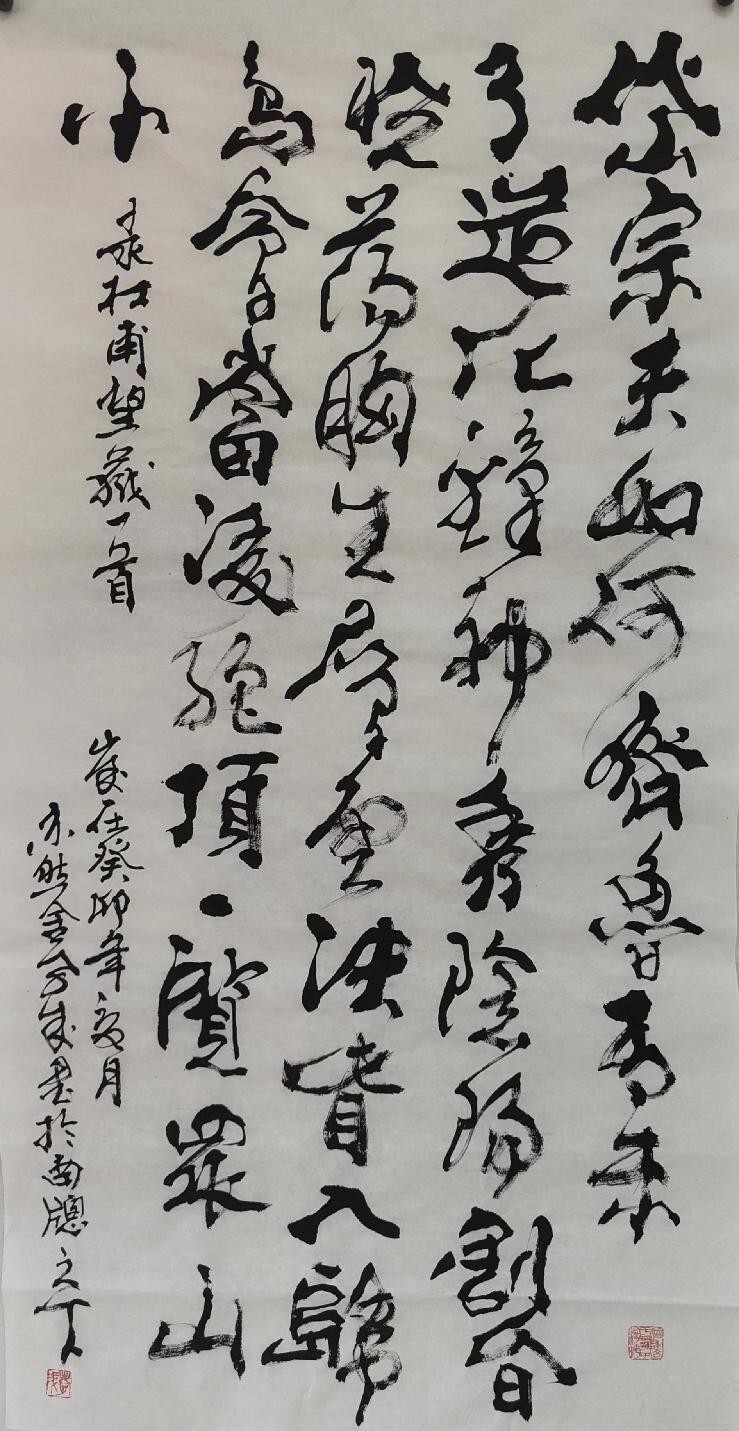 岱宗夫如何齊魯青未
了造化鍾神秀陰陽割昏
曉蕩胸生層雲決眥入歸
鳥會當凌絕頂一覽眾山
小
錄杜甫望嶽一首
歲在癸卯年亥月
亦然金書於南窗之下